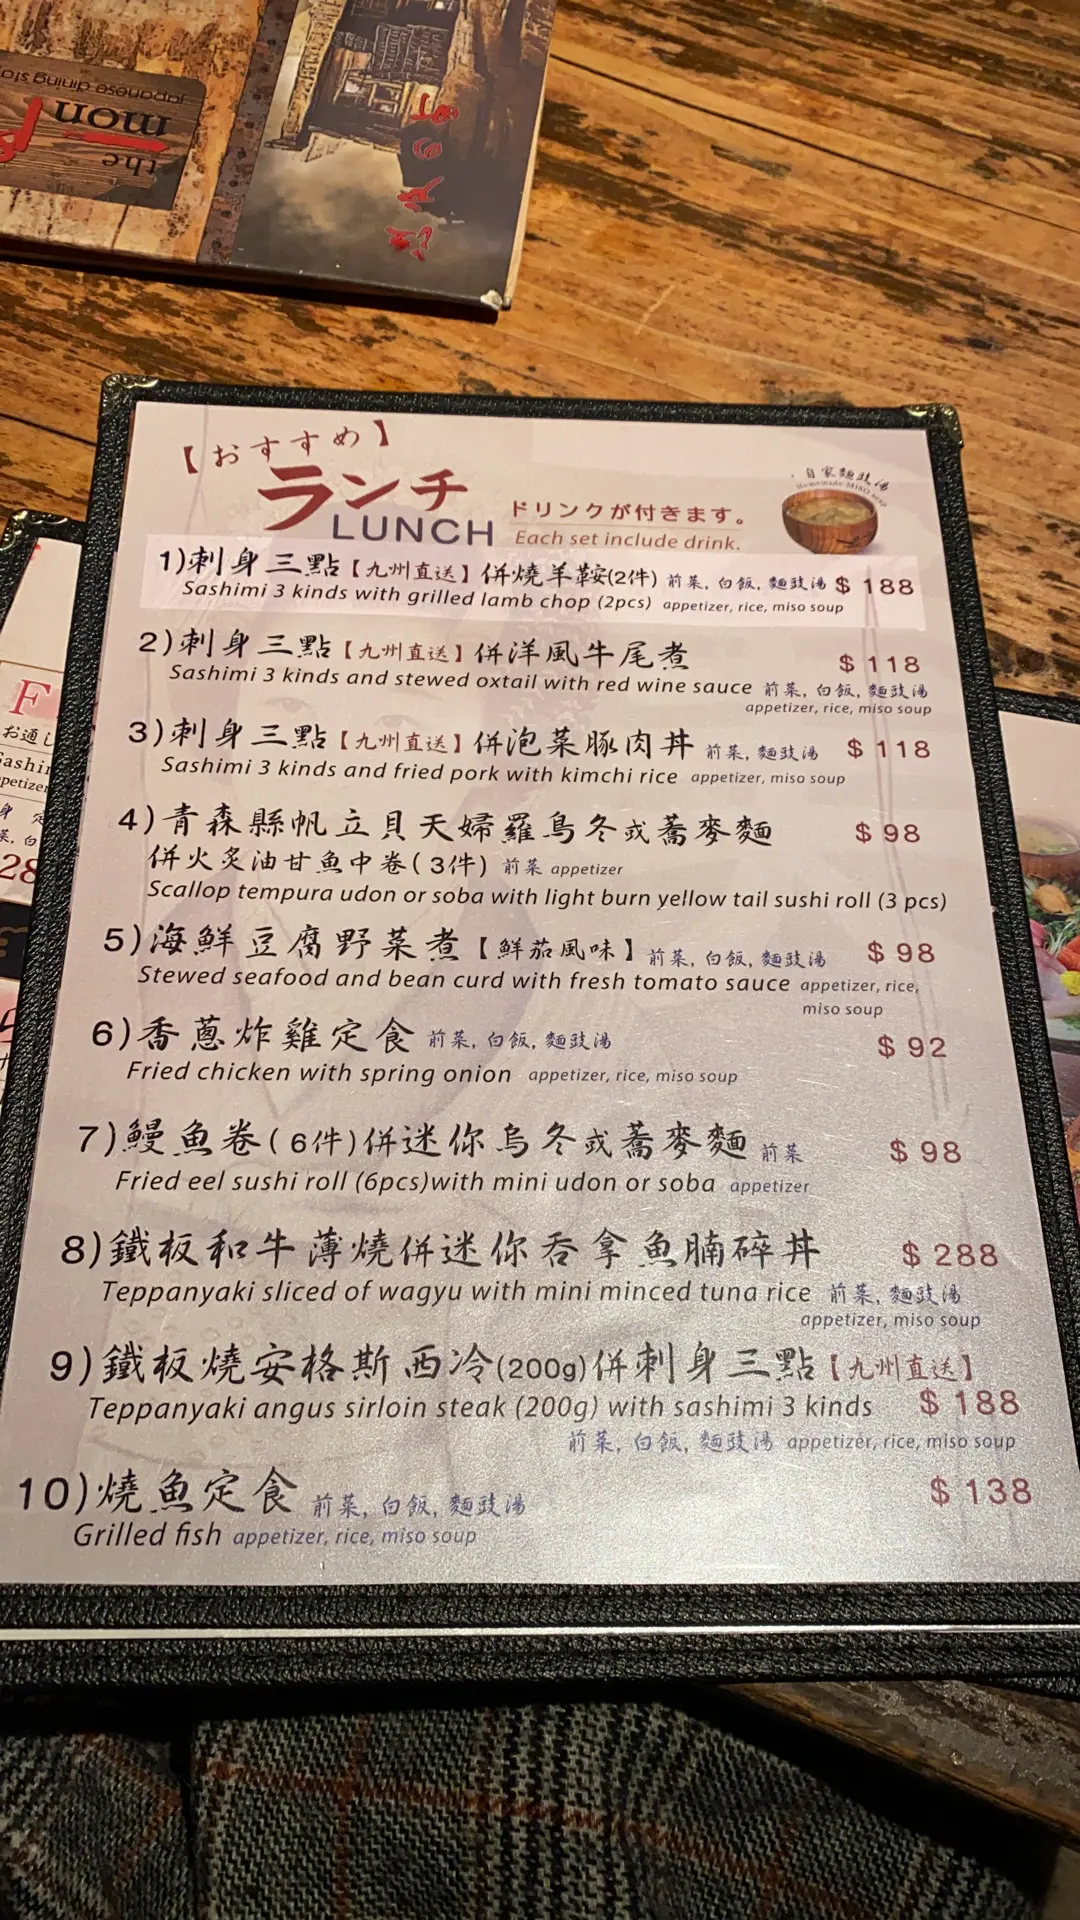 japanese dining sta
the
mon
の町
【おすすめ】
ランチ
LUNCH
ドリンクが付きます。
Each set include drink.
自家麵豉湯
Homemade Miso soup
1)刺身三點【九州直送】併燒羊鞍(2件) 前菜, 白飯, 麵豉湯 $ 188
Sashimi 3 kinds with grilled lamb chop (2pcs) appetizer, rice, miso soup
2)刺身三點【九州直送】併洋風牛尾煮 $ 118
Sashimi 3 kinds and stewed oxtail with red wine sauce 前菜, 白飯, 麵豉湯
appetizer, rice, miso soup
3)刺身三點【九州直送】併泡菜豚肉丼 前菜, 麵豉湯 $ 118
Sashimi 3 kinds and fried pork with kimchi rice appetizer, miso soup
4)青森縣帆立貝天婦羅烏冬或蕎麥麵 $ 98
併火炙油甘魚中卷(3件) 前菜 appetizer
Scallop tempura udon or soba with light burn yellow tail sushi roll (3 pcs)
5)海鮮豆腐野菜煮【鮮茄風味】前菜, 白飯, 麵豉湯 $ 98
Stewed seafood and bean curd with fresh tomato sauce appetizer, rice,
miso soup
6)香蔥炸雞定食 前菜, 白飯, 麵豉湯 $ 92
Fried chicken with spring onion appetizer, rice, miso soup
7)鰻魚卷(6件)併迷你烏冬或蕎麥麵 前菜 $ 98
Fried eel sushi roll (6pcs)with mini udon or soba appetizer
8)鐵板和牛薄燒併迷你吞拿魚腩碎丼 $ 288
Teppanyaki sliced of wagyu with mini minced tuna rice 前菜, 麵豉湯
appetizer, miso soup
9)鐵板燒安格斯西冷(200g)併刺身三點【九州直送】
Teppanyaki angus sirloin steak (200g) with sashimi 3 kinds $ 188
前菜, 白飯, 麵豉湯 appetizer, rice, miso soup
10)燒魚定食 前菜, 白飯, 麵豉湯 $ 138
Grilled fish appetizer, rice, miso soup
F
お通し
Sashi
petizer
28